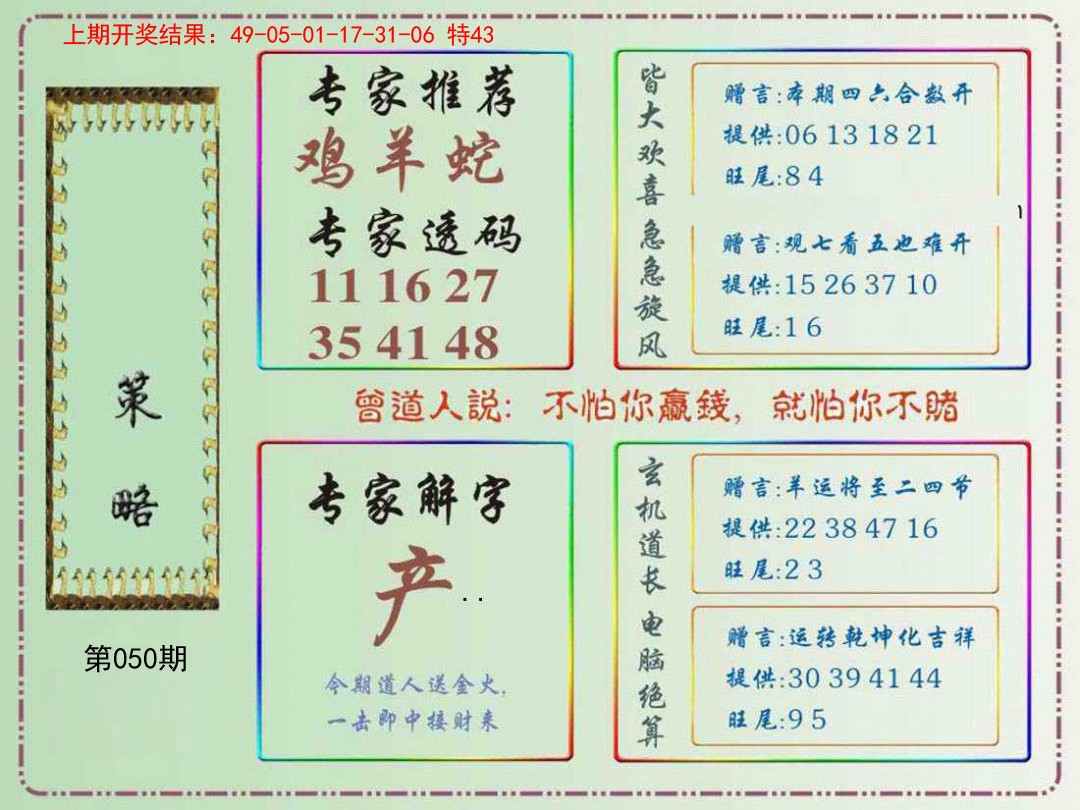 上期开奖结果：49-05-01-17-31-06 特43
策略
第050期
专家推荐
鸡羊蛇
专家透码
11 16 27
35 41 48
皆大欢喜
赠言:本期四六合数开
提供:06 13 18 21
旺尾:8 4
急急旋风
赠言:观七看五也难开
提供:15 26 37 10
旺尾:1 6
曾道人説：不怕你赢錢，就怕你不賭
专家解字
产
今期道人送金火,
一击即中接财来
玄机道长
赠言:羊运将至二四节
提供:22 38 47 16
旺尾:2 3
电脑绝算
赠言:运转乾坤化吉祥
提供:30 39 41 44
旺尾:9 5